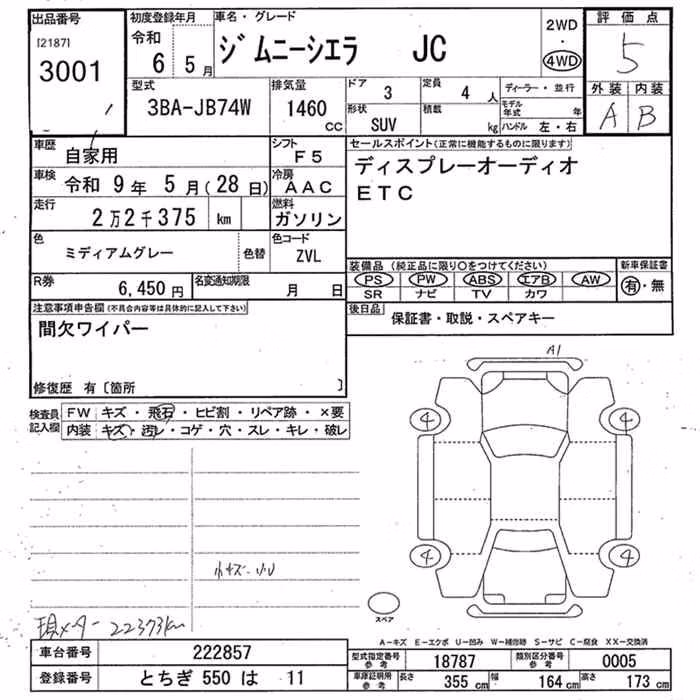 出品番号
[2187]
3001
初度登録年月
令和
6年 5月
車名・グレード
ジムニーシエラ JC
2WD
・
4WD
評価点
5
外装 内装
A B
型式
3BA-JB74W
排気量
1460
cc
ドア
3
定員
4人
形状
SUV
積載
kg
ディーラー・並行
モデル年式 年
ハンドル 左・右
車歴
自家用
シフト
F5
車検
令和 9年 5月(28日)
冷房
AAC
走行
2万2千375 km
燃料
ガソリン
色
ミディアムグレー
色替
色コード
ZVL
R券
6,450円
名変通知期限
月 日
セールスポイント(正常に機能するものに限ります)
ディスプレーオーディオ
ETC
装備品 (純正品に限り○をつけてください)
PS PW ABS エアB AW
SR ナビ TV カワ
新車保証書
有・無
後日品
保証書・取説・スペアキー
注意事項申告欄(不具合内容等は具体的に記入して下さい)
間欠ワイパー
修復歴 有〔箇所 〕
検査員
記入欄
FW キズ・飛石・ヒビ割・リペア跡・×要
内装 キズ・汚レ・コゲ・穴・スレ・キレ・破レ
A1
4 4
4 4
小キズ・小U
現メーター 22373km
スペア
A−キズ E−エクボ U−凹み W−補修跡 S−サビ C−腐食 XX−交換済
車台番号
222857
登録番号
とちぎ 550 は 11
型式指定番号
参考
18787
類別区分番号
参考
0005
車庫証明用
参考
長さ
355cm
幅
164cm
高さ
173cm